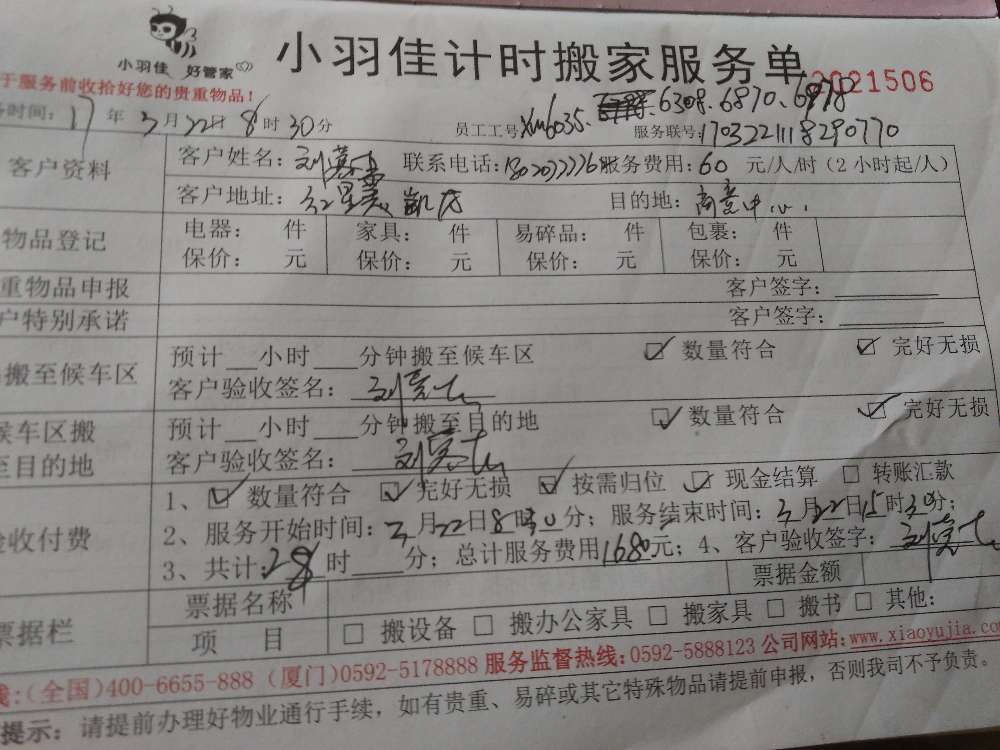 小羽佳 好管家
小羽佳计时搬家服务单
2021506
于服务前收拾好您的贵重物品!
务时间: 17年3月22日8时30分 员工工号 xm6035、6308、6870、6878
服务联号: 1703221118290770
客户资料 客户姓名: 联系电话: 服务费用: 60 元/人/时(2小时起/人)
客户地址: 目的地: 商竞中心
物品登记 电器: 件 家具: 件 易碎品: 件 包裹: 件
保价: 元 保价: 元 保价: 元 保价: 元
重物品申报 客户签字:
户特别承诺 客户签字:
搬至候车区 预计__小时___分钟搬至候车区 ☑ 数量符合 ☑ 完好无损
客户验收签名:
候车区搬 预计__小时___分钟搬至目的地 ☑ 数量符合 ☑ 完好无损
至目的地 客户验收签名:
验收付费 1、☑ 数量符合 ☑ 完好无损 ☑ 按需归位 ☑ 现金结算 □ 转账汇款
2、服务开始时间: 3月22日8时30分; 服务结束时间: 3月22日15时30分;
3、共计: 28时___分; 总计服务费用1680元; 4、客户验收签字:
票据栏 票据名称 票据金额
项 目 □ 搬设备 □ 搬办公家具 □ 搬家具 □ 搬书 □ 其他:
线:(全国)400-6655-888 (厦门)0592-5178888 服务监督热线:0592-5888123 公司网站:www.xiaoyujia.com
提示: 请提前办理好物业通行手续, 如有贵重、易碎或其它特殊物品请提前申报, 否则我司不予负责。